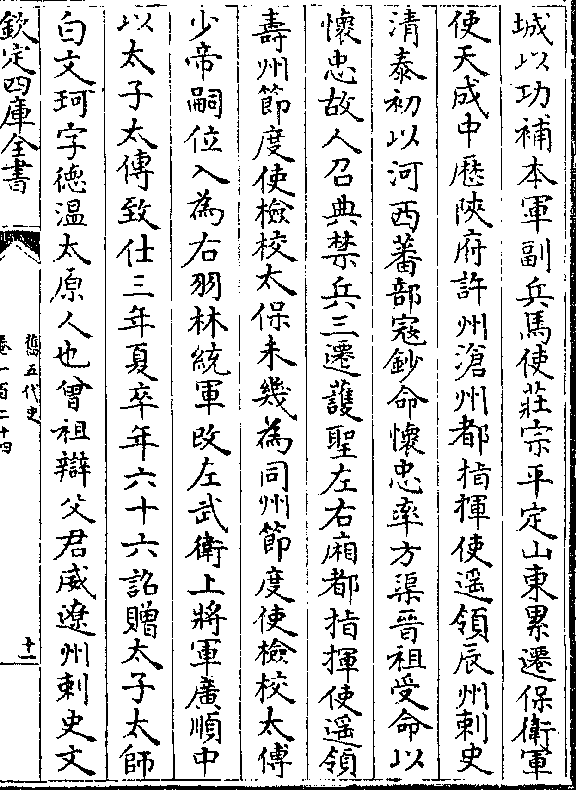 城以功補本軍副兵馬使莊宗平定山東累遷保衛軍
使天成中歷陜府許州滄州都指揮使遥領辰州刺史
清泰初以河西蕃部寇鈔命懷忠率方渠晉祖受命以
懷忠故人召典禁兵三遷護聖左右廂都指揮使遥領
壽州節度使檢校太保未幾為同州節度使檢校太傅
少帝嗣位入為右羽林統軍改左武衛上將軍廣順中
以太子太傅致仕三年夏卒年六十六詔贈太子太師
白文珂字德温太原人也曾祖辯父君威遼州刺史文
欽定四庫全書
舊五代史
卷一百二十四
十一